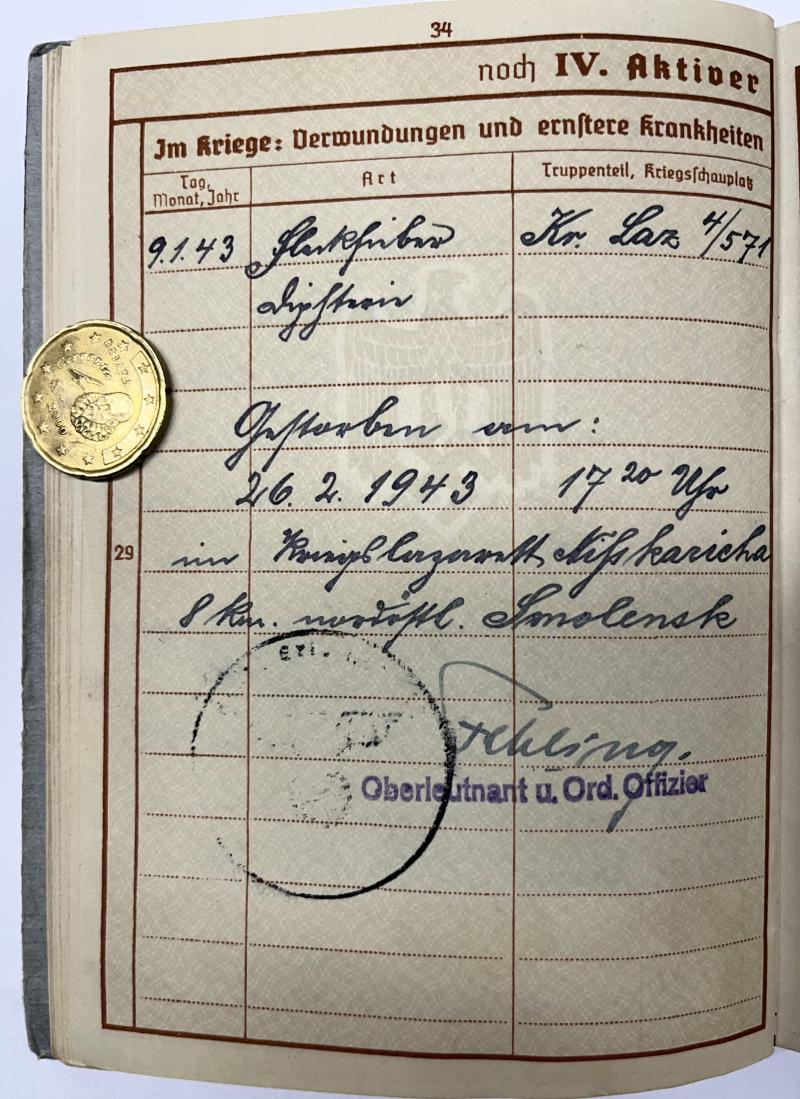 34
noch IV. Aktiver
Im Kriege: Verwundungen und ernstere Krankheiten
Tag, Monat, Jahr
Art
Truppenteil, Kriegsschauplatz
9.1.43 Fleckfieber Kr. Laz 4/571
Diphterie
Gestorben am:
26. 2. 1943 17 20 Uhr
29
im Kriegslazarett Nishkaricha
8 km. nordöstl. Smolensk
Oberleutnant u. Ord. Offizier